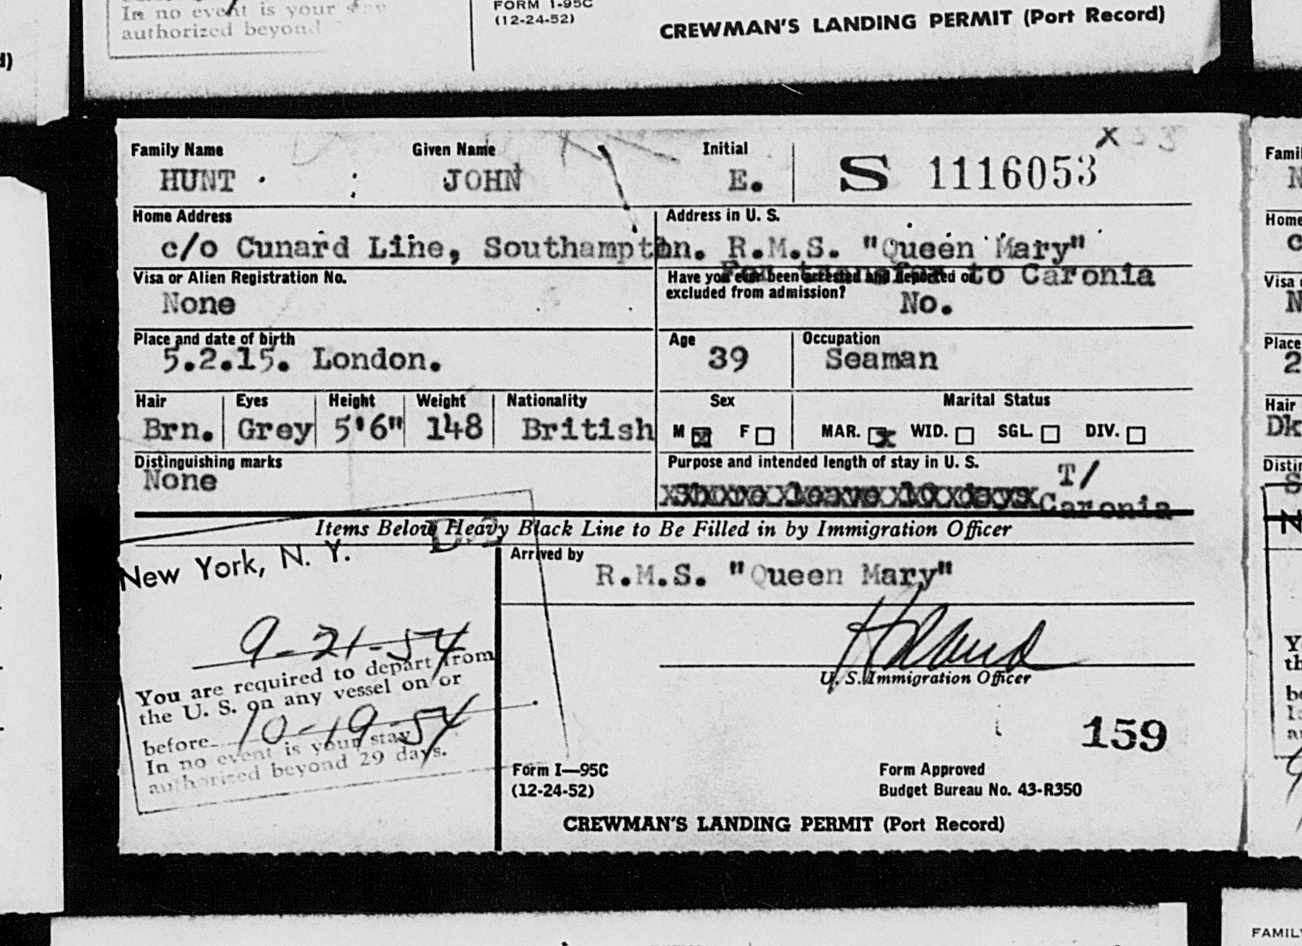 In no event is your stay
authorized beyond
FORM I-95C
(12-24-52)
CREWMAN'S LANDING PERMIT (Port Record)
Family Name Given Name Initial
HUNT JOHN E. S 1116053
Home Address Address in U. S.
c/o Cunard Line, Southampton. R.M.S. "Queen Mary"
to Caronia
Visa or Alien Registration No. Have you ever been arrested and deported or
excluded from admission?
None No.
Place and date of birth Age Occupation
5.2.15. London. 39 Seaman
Hair Eyes Height Weight Nationality Sex Marital Status
Brn. Grey 5'6" 148 British M F MAR. WID. SGL. DIV.
Distinguishing marks Purpose and intended length of stay in U. S.
None T/
Shore leave 10 days Caronia
Items Below Heavy Black Line to Be Filled in by Immigration Officer
New York, N. Y.
Arrived by
R.M.S. "Queen Mary"
9-21-54
You are required to depart from
the U. S. on any vessel on or
before 10-19-54
In no event is your stay
authorized beyond 29 days.
U. S. Immigration Officer
159
Form I—95C Form Approved
(12-24-52) Budget Bureau No. 43-R350
CREWMAN'S LANDING PERMIT (Port Record)